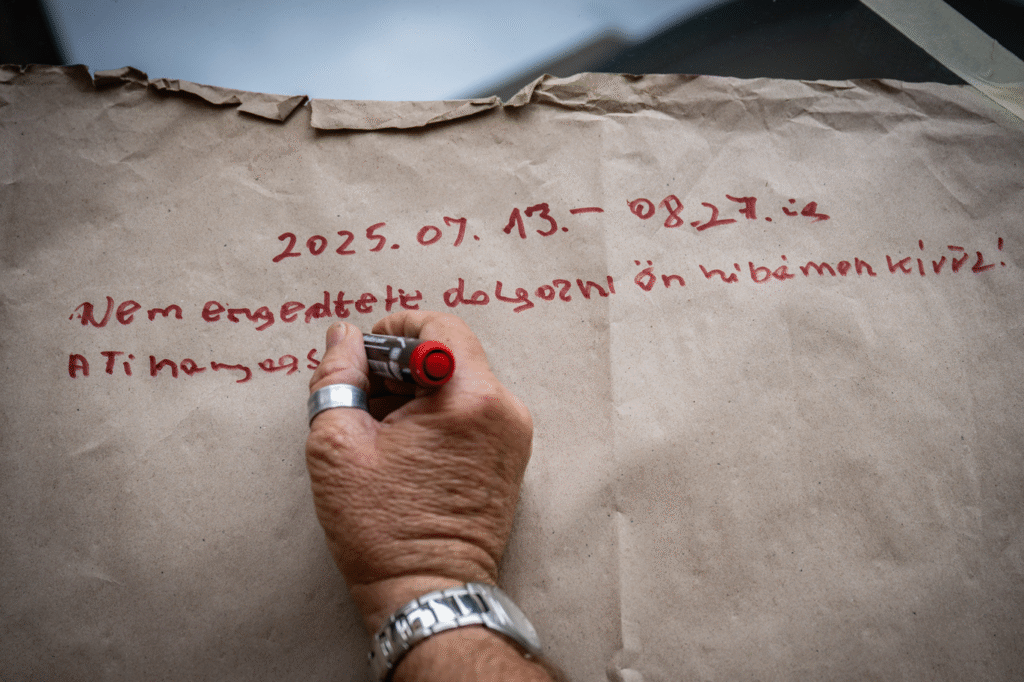 2025. 07. 13. - 08.27. is
Nem engedtetek dolgozni ön hibámon kivűl!
A Ti hanyags